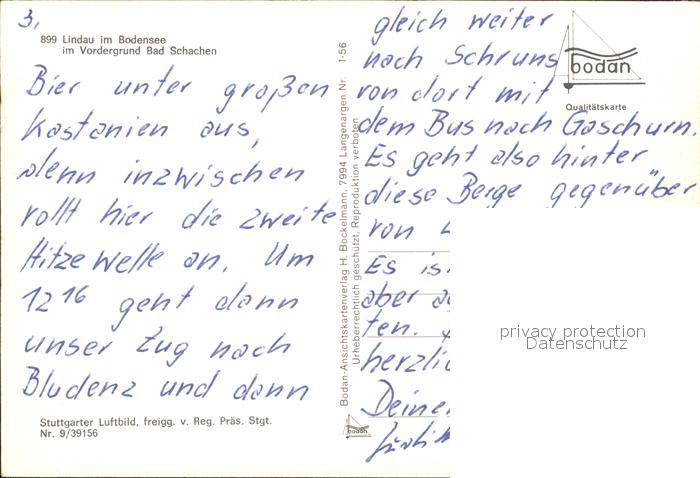 3,
899 Lindau im Bodensee
im Vordergrund Bad Schachen
Bier unter großen
Kastanien aus,
denn inzwischen
rollt hier die zweite
Hitzewelle an. Um
12 16 geht dann
unser Zug nach
Bludenz und dann
Stuttgarter Luftbild, freigg. v. Reg. Präs. Stgt.
Nr. 9/39156
Bodan-Ansichtskartenverlag H. Bockelmann, 7994 Langenargen Nr. 1-56
Urheberrechtlich geschützt, Reproduktion verboten
bodan
gleich weiter
nach Schruns
von dort mit
dem Bus nach Gaschurn.
Es geht also hinter
diese Berge gegenüber
von
Es
aber
ten.
bodan
Qualitätskarte
privacy protection
Datenschutz